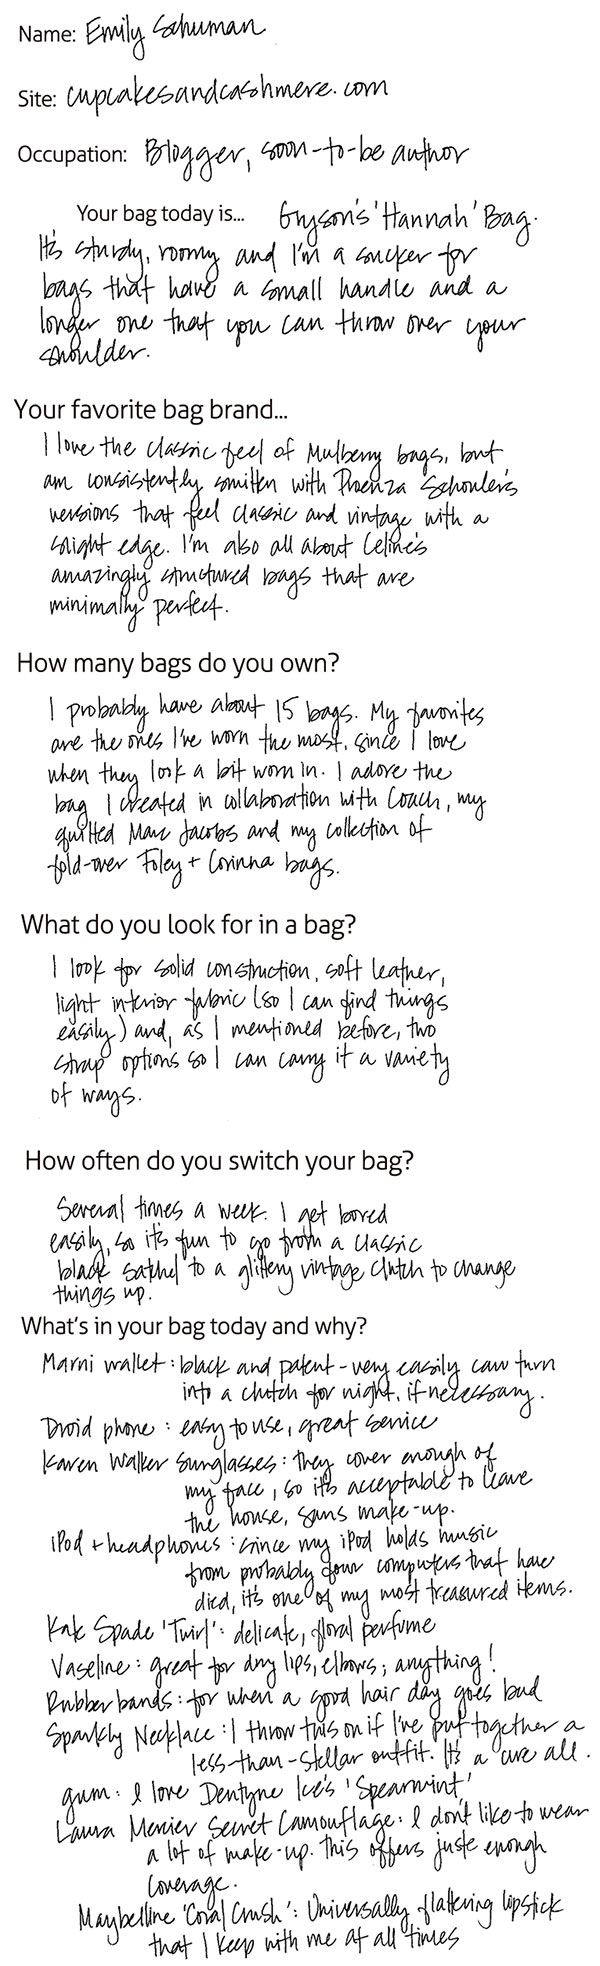 Name: Emily Schuman
Site: cupcakesandcashmere.com
Occupation: Blogger, soon-to-be author
Your bag today is... Gryson's 'Hannah' Bag.
It's sturdy, roomy and I'm a sucker for
bags that have a small handle and a
longer one that you can throw over your
shoulder.
Your favorite bag brand...
I love the classic feel of Mulberry bags, but
am consistently smitten with Proenza Schouler's
versions that feel classic and vintage with a
slight edge. I'm also all about Celine's
amazingly structured bags that are
minimally perfect.
How many bags do you own?
I probably have about 15 bags. My favorites
are the ones I've worn the most, since I love
when they look a bit worn in. I adore the
bag I created in collaboration with Coach, my
quilted Marc Jacobs and my collection of
fold-over Foley + Corinna bags.
What do you look for in a bag?
I look for solid construction, soft leather,
light interior fabric (so I can find things
easily) and, as I mentioned before, two
strap options so I can carry it a variety
of ways.
How often do you switch your bag?
Several times a week. I get bored
easily, so it's fun to go from a classic
black satchel to a glittery vintage clutch to change
things up.
What's in your bag today and why?
Marni wallet: black and patent - very easily can turn
into a clutch for night, if necessary.
Droid phone: easy to use, great service
Karen Walker Sunglasses: they cover enough of
my face, so it's acceptable to leave
the house, sans make-up.
iPod + headphones: since my iPod holds music
from probably four computers that have
died, it's one of my most treasured items.
Kate Spade 'Twirl': delicate, floral perfume
Vaseline: great for dry lips, elbows, anything!
Rubber bands: for when a good hair day goes bad
Sparkly Necklace: I throw this on if I've put together a
less-than-stellar outfit. It's a cure all.
gum: I love Dentyne Ice's 'Spearmint'
Laura Mercier Secret Camouflage: I don't like to wear
a lot of make-up. This offers juste enough
coverage.
Maybelline 'Coral Crush': Universally flattering lipstick
that I keep with me at all times